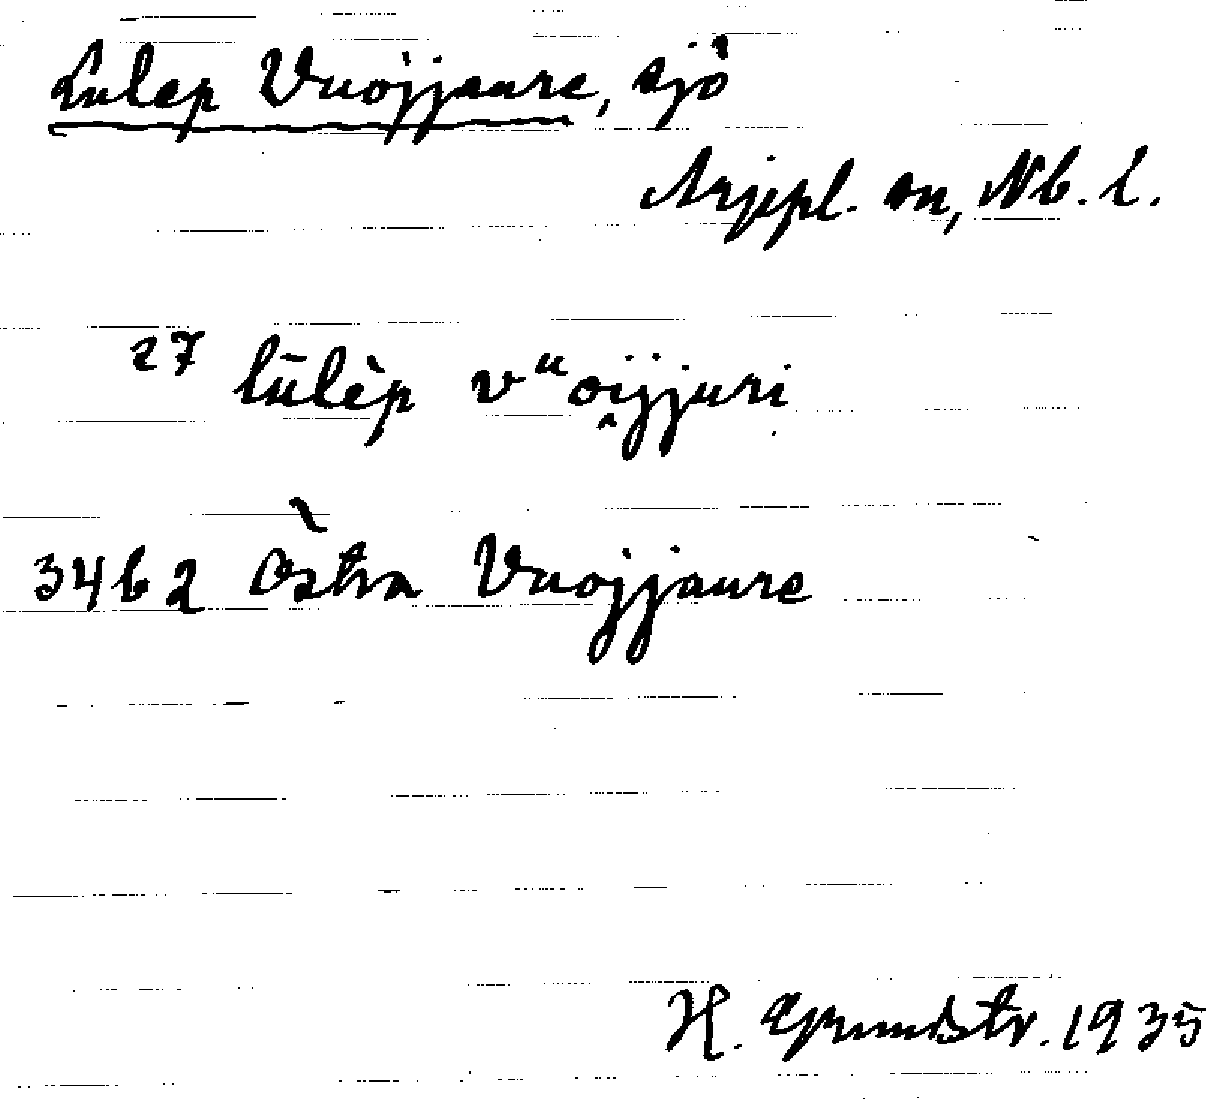 Lulep Vuojjaure, sjö
Arjepl. sn, Nb. l.
27 lūlèp vᵘo̭ijjuri
3462 Östra Vuojjaure
H. Grundstr. 1935